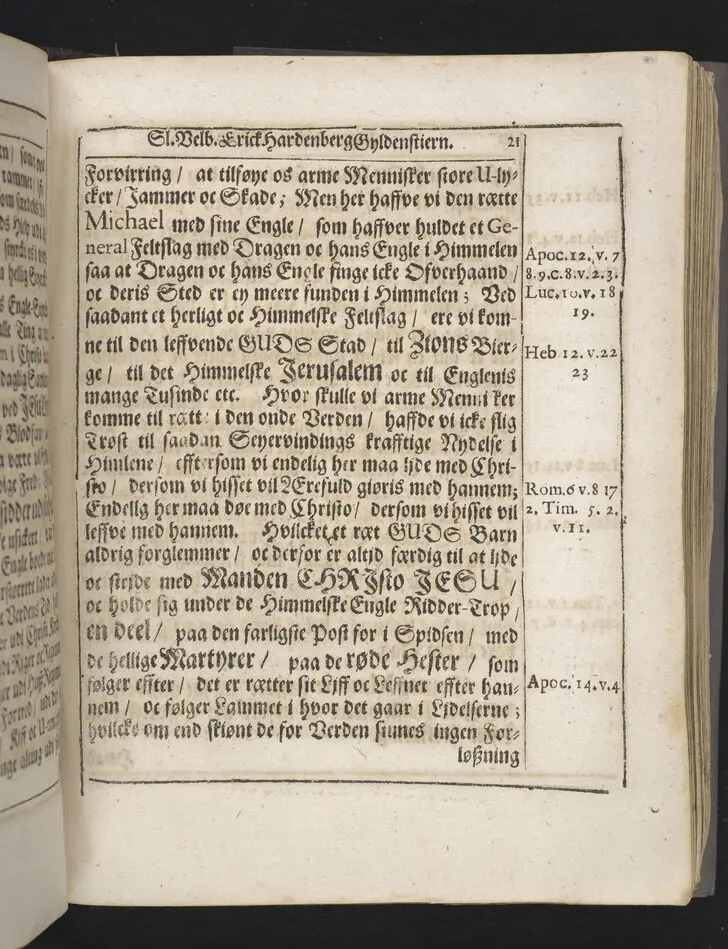 Sl. Velb. Erick Hardenberg Gyldenstiern. 21
Forvirring / at tilføye os arme Mennisker store U-ly-
cker / Jammer oc Skade; Men her haffve vi den rætte
Michael med sine Engle / som haffver huldet et Ge-
neral Feltslag med Dragen oc hans Engle i Himmelen
saa at Dragen oc hans Engle finge icke Ofverhaand /
oc deris Sted er ey meere funden i Himmelen; Ved
saadant et herligt oc Himmelske Feltslag / ere vi kom-
ne til den leffvende GUDS Stad / til Zions Bier-
ge / til det Himmelske Jerusalem oc til Englenis
mange Tusinde etc. Hvor skulle vi arme Mennisker
komme til rætte i den onde Verden / haffde vi icke slig
Trøst til saadan Seyervindings krafftige Nydelse i
Himlene / efftersom vi endelig her maa lide med Chri-
sto / dersom vi hisset vil Ærefuld giøris med hannem;
Endelig her maa døe med Christo / dersom vi hisset vil
leffve med hannem. Hvilcket et ræt GUDS Barn
aldrig forglemmer / oc derfor er altjd færdig til at ljde
oc strjde med Manden CHRJsto JESU /
oc holde sig under de Himmelske Engle Ridder-Trop /
en deel / paa den farligste Post for i Spidsen / med
de hellige Martyrer / paa de røde Hester / som
følger effter / det er rætter sit Ljff oc Leffnet effter han-
nem / oc følger Lammet i hvor det gaar i Ljdelserne;
hvilcke om end skiønt de for Verden siunes ingen For-
løßning
Apoc. 12. v. 7
8. 9. c. 8. v. 2. 3.
Luc. 10. v. 18
19.
Heb 12. v. 22
23
Rom. 6 v. 8 17
2. Tim. 5. 2.
v. 11.
Apoc. 14. v. 4